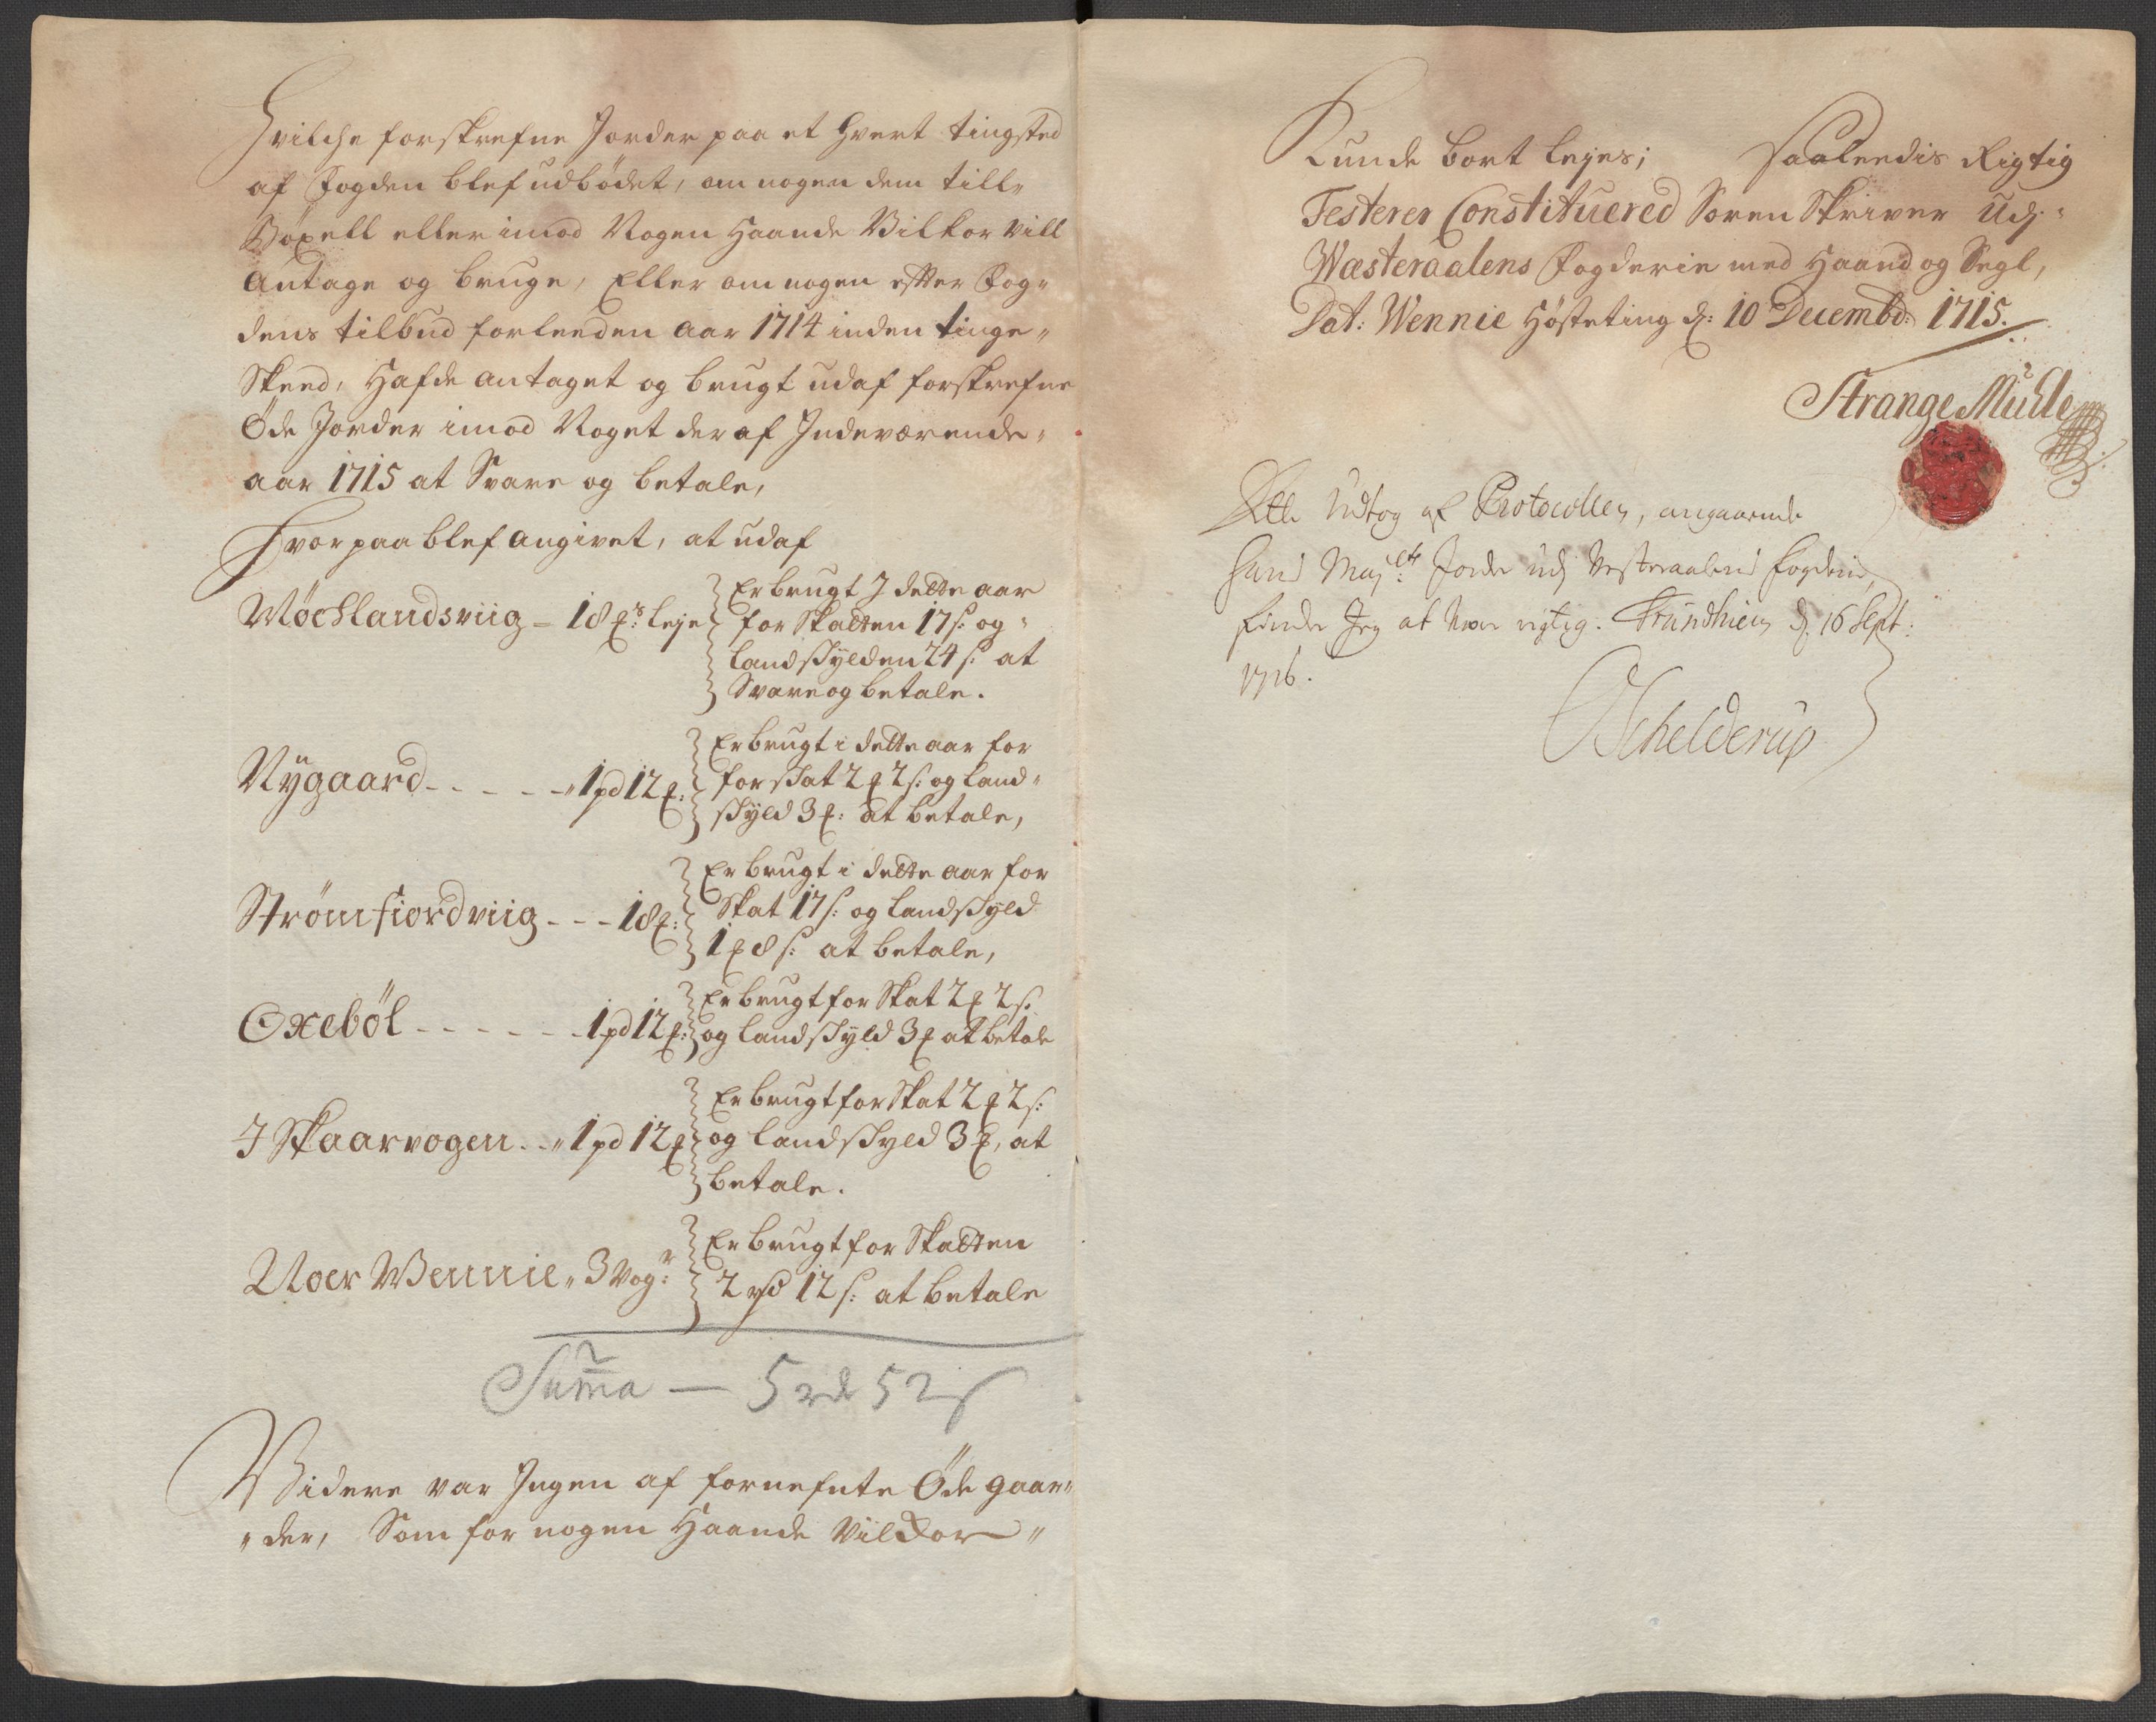 Hvilche forskrefne Jorder paa et hvert tingsted
af Fogden blef udbödet, om nogen dem till
Böxell eller imod Nogen Haande Vilkor vill
Antage og bruge, Eller om nogen efter Fog-
dens tilbud forleeden Aar 1714 inden tinge
Skeed, Hafde antaget og brugt udaf forskrefne
Öde Jorder imod Noget deraf Indeværende
aar 1715 at Svare og betale,
Hvorpaa blef angivet, at udaf
Möchlandsviig - 18 ℔r: leje
Er brugt J dette aar
for Skatten 17 s: og
landskylden 24 s: at
Svare og betale.
Nÿgaard - - - - - 1 pd 12 ℔:
Er brugt i dette aar for
for skat 2 ℔ 2 s: og land-
skyld 3 ℔: at betale,
Strömfiordviig - - - 18 ℔:
Er brugt i dette aar for
Skat 17 s: og landskyld
1 ℔ 8 s: at betale,
Oxeböl - - - - - - 1 pd 12 ℔:
Er brugt for Skat 2 ℔ 2 s:
og landskyld 3 ℔ at betale
J Skaarvogen - - 1 pd 12 ℔
Er brugt for Skat 2 ℔ 2 s:
og landskyld 3 ℔, at
betale.
Noer Wennie 3 Vogr:
Er brugt for Skatten
2 rd 12 s: at betale
Suma — 5 rd 52 s
Widere var Ingen af fornefnte Öde gaar-
der, Som for nogen Haande Vilkor
Kunde bort lejes; Saaleedis Rigtig
Testerer Constituered Soren Skriver Udj
Wæsteraalens Fogderie med Haand og Segl,
Dat: Wennie Hösteting d: 10 Decembr: 1715.
Strange Mühle
Dette Udtog af Protocollen, angaaende
Hans Mayts: Jorder udj Vesteraalens fogderie,
finder Jeg at være rigtig. Trundhiem d. 16 Sept:
1716.
Schelderup